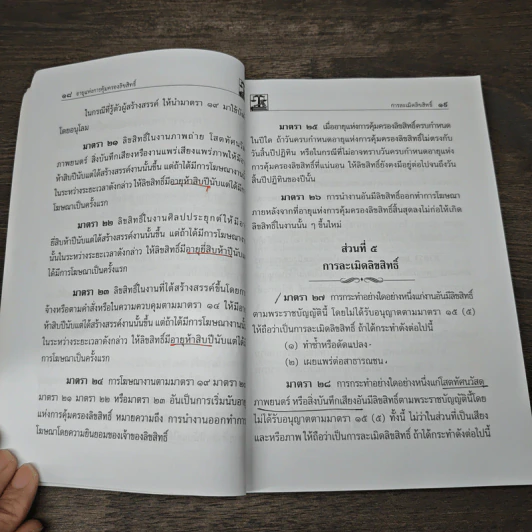 ๑๘ อายุแห่งการคุ้มครองลิขสิทธิ์
ในกรณีที่รู้ตัวผู้สร้างสรรค์ ให้นำมาตรา ๑๙ มาใช้บัง
โดยอนุโลม
มาตรา ๒๑ ลิขสิทธิ์ในงานภาพถ่าย โสตทัศนวั
ภาพยนตร์ สิ่งบันทึกเสียงหรืองานแพร่เสียงแพร่ภาพให้มี
ห้าสิบปีนับแต่ได้สร้างสรรค์งานนั้นขึ้น แต่ถ้าได้มีการโฆษณางาน
ในระหว่างระยะเวลาดังกล่าว ให้ลิขสิทธิ์มีอายุห้าสิบปีนับแต่ได้มี
โฆษณาเป็นครั้งแรก
มาตรา ๒๒ ลิขสิทธิ์ในงานศิลปประยุกต์ให้มี
ยี่สิบห้าปีนับแต่ได้สร้างสรรค์งานนั้นขึ้น แต่ถ้าได้มีการโฆษณา
นั้นในระหว่างระยะเวลาดังกล่าว ให้ลิขสิทธิ์มีอายุยี่สิบห้าปีนับ
ได้มีการโฆษณาเป็นครั้งแรก
มาตรา ๒๓ ลิขสิทธิ์ในงานที่ได้สร้างสรรค์ขึ้นโดยการ
จ้างหรือตามคำสั่งหรือในความควบคุมตามมาตรา ๑๔ ให้มีอา
ห้าสิบปีนับแต่ได้สร้างสรรค์งานนั้นขึ้น แต่ถ้าได้มีการโฆษณางานนั้
ในระหว่างระยะเวลาดังกล่าว ให้ลิขสิทธิ์มีอายุห้าสิบปีนับแต่ได้
การโฆษณาเป็นครั้งแรก
มาตรา ๒๔ การโฆษณางานตามมาตรา ๑๙ มาตรา ๒
มาตรา ๒๑ มาตรา ๒๒ หรือมาตรา ๒๓ อันเป็นการเริ่มนับอายุ
แห่งการคุ้มครองลิขสิทธิ์ หมายความถึง การนำงานออกทำการ
โฆษณาโดยความยินยอมของเจ้าของลิขสิทธิ์
การละเมิดลิขสิทธิ์ ๑๙
มาตรา ๒๕ เมื่ออายุแห่งการคุ้มครองลิขสิทธิ์ครบกำหนด
ในปีใด ถ้าวันครบกำหนดอายุแห่งการคุ้มครองลิขสิทธิ์ไม่ตรงกับ
วันสิ้นปีปฏิทิน หรือในกรณีที่ไม่อาจทราบวันครบกำหนดอายุแห่ง
การคุ้มครองลิขสิทธิ์ที่แน่นอน ให้ลิขสิทธิ์ยังคงมีอยู่ต่อไปจนถึงวัน
สิ้นปีปฏิทินของปีนั้น
มาตรา ๒๖ การนำงานอันมีลิขสิทธิ์ออกทำการโฆษณา
ภายหลังจากที่อายุแห่งการคุ้มครองลิขสิทธิ์สิ้นสุดลงไม่ก่อให้เกิด
ลิขสิทธิ์ในงานนั้น ๆ ขึ้นใหม่
ส่วนที่ ๕
การละเมิดลิขสิทธิ์
มาตรา ๒๗ การกระทำอย่างใดอย่างหนึ่งแก่งานอันมีลิขสิทธิ์
ตามพระราชบัญญัตินี้ โดยไม่ได้รับอนุญาตตามมาตรา ๑๕ (๕)
ให้ถือว่าเป็นการละเมิดลิขสิทธิ์ ถ้าได้กระทำดังต่อไปนี้
(๑) ทำซ้ำหรือดัดแปลง
(๒) เผยแพร่ต่อสาธารณชน
มาตรา ๒๘ การกระทำอย่างใดอย่างหนึ่งแก่โสตทัศนวัสดุ
ภาพยนตร์ หรือสิ่งบันทึกเสียงอันมีลิขสิทธิ์ตามพระราชบัญญัตินี้โดย
ไม่ได้รับอนุญาตตามมาตรา ๑๕ (๕) ทั้งนี้ ไม่ว่าในส่วนที่เป็นเสียง
และหรือภาพ ให้ถือว่าเป็นการละเมิดลิขสิทธิ์ ถ้าได้กระทำดังต่อไปนี้